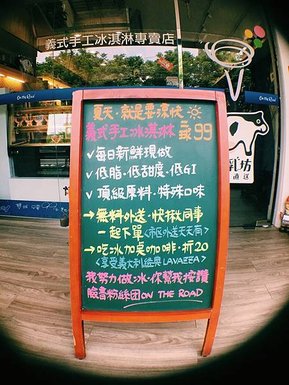 義式手工冰淇淋專賣店
On the Road
夏天,就是要涼快
義式手工冰淇淋 每球99
✓每日新鮮現做
✓低脂.低甜度.低GI
✓頂級原料.特殊口味
→無料外送.快揪同事
一起下單<市區外送天天有>
→吃冰加桌咖啡.折20
<享受義大利經典LAVAZZA>
我努力做冰.你幫我按讚
臉書粉絲團ON THE ROAD
乳坊